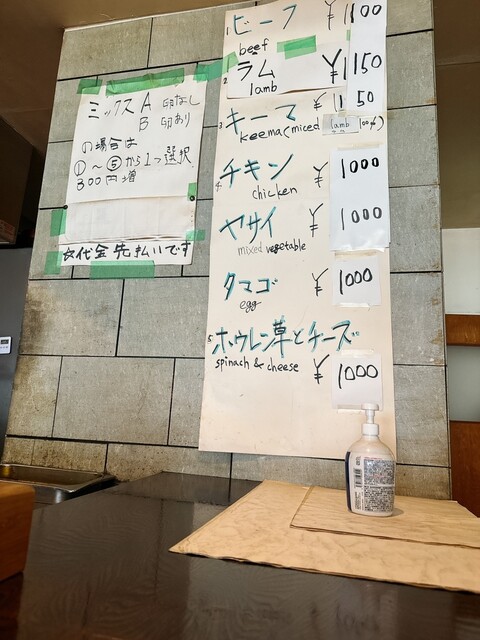 ミックス A 卵なし
B 卵あり
の場合は
①～⑤から1つ選択
300円増
代金先払いです
1. ビーフ ¥1100
beef
2. ラム ¥1150
lamb
3. キーマ ¥1150
keema (miced lamb 100%)
4. チキン ¥1000
chicken
ヤサイ ¥1000
mixed vegetable
タマゴ ¥1000
egg
5. ホウレン草とチーズ
spinach & cheese ¥1000